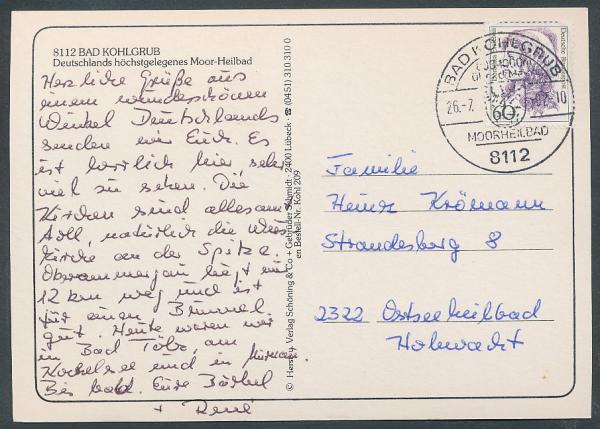 8112 BAD KOHLGRUB
Deutschlands höchstgelegenes Moor-Heilbad
Herzliche Grüße aus
einem wunderschönen
Winkel Deutschlands
senden wir Euch. Es
ist herrlich hier sehr
viel zu sehen. Die
Kirchen sind allesamt
toll, natürlich die Wies
kirche an der Spitze.
Oberammergau liegt nur
12 km weg und ist
für einen Bummel
gut. Heute waren wir
in Bad Tölz, am
Kochelsee und in Murnau.
Bis bald. Eure Bärbel
+ René
© Herst. u. Verlag Schöning & Co + Gebrüder Schmidt · 2400 Lübeck · ☎ (0451) 310 310 0
en Bestell-Nr. Kohl 209
BAD KOHLGRUB
26.-7.
10
60
MOORHEILBAD
8112
Deutsche Bundespost
Familie
Heinz Krömann
Strandesberg 8
2322 Ostseeheilbad
Hohwacht